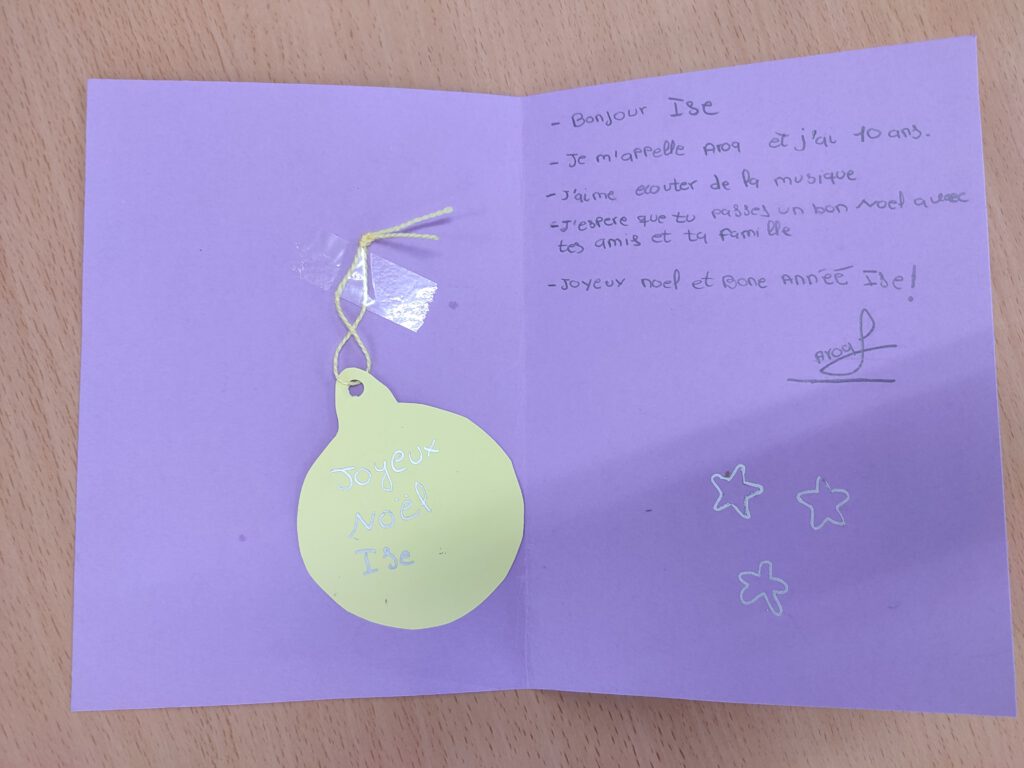 Joyeux
Noël
Ise
- Bonjour Ise
- Je m'appelle Aroa et j'ai 10 ans.
- J'aime ecouter de la musique
- J'espere que tu passes un bon Noel avaec
tes amis et ta famille
- Joyeux noel et Bone Année Ise!
Aroa